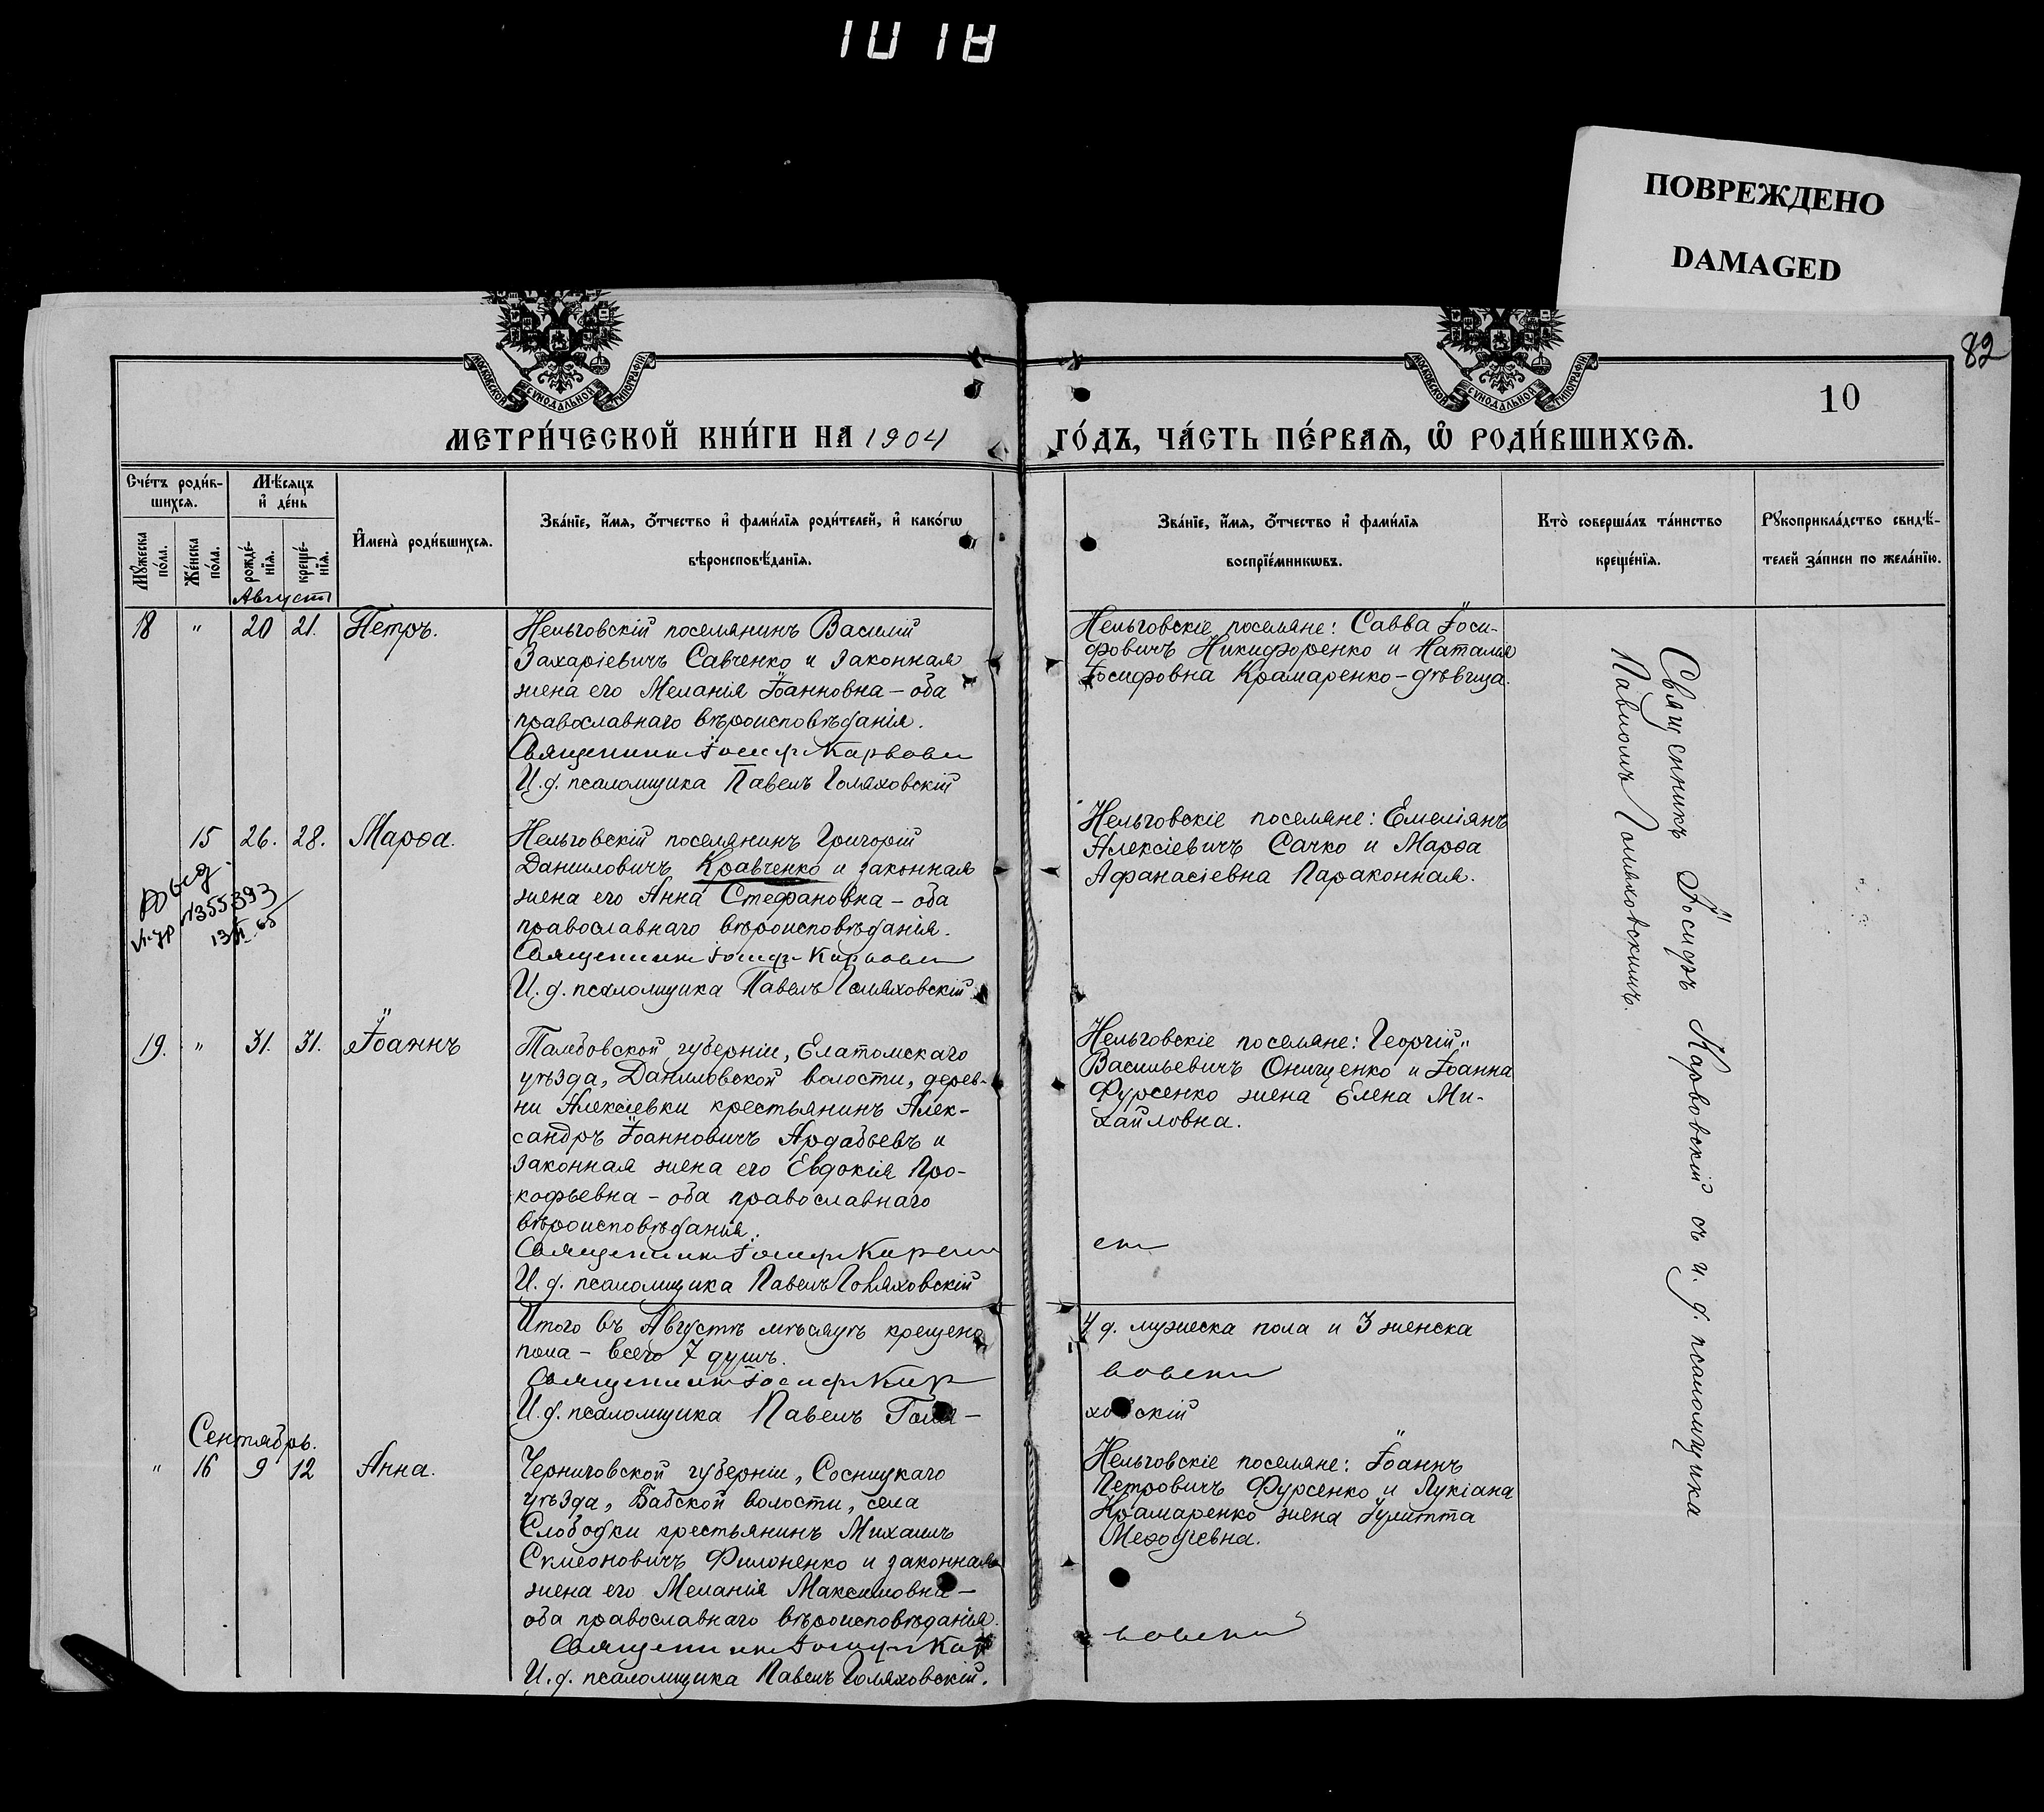 1018
ПОВРЕЖДЕНО
DAMAGED
82
МОСКОВСКОЙ СѴНОДАЛЬНОЙ ТИПОГРАФІИ
МОСКОВСКОЙ СѴНОДАЛЬНОЙ ТИПОГРАФІИ
10
МЕТРИ́ЧЕСКОЙ КНИ́ГИ НА 1904
ГО́ДЪ, ЧА́СТЬ ПЕ́РВАѦ, Ѿ РОДИ́ВШИХСѦ.
Сче́тъ роди́в-
шихсѧ.
Мꙋ́жеска по́ла.
Же́нска по́ла.
Мѣ́сѧцъ
и҆ де́нь
рожде́-
нїѧ.
креще́-
нїѧ.
И҆мена̀ роди́вшихсѧ.
Зва́нїе, и҆́мѧ, ѻ҆́тчество и҆ фами́лїѧ роди́телей, и҆ како́гѡ
вѣроисповѣ́данїѧ.
Зва́нїе, и҆́мѧ, ѻ҆́тчество и҆ фами́лїѧ
воспрїе́мникѡвъ.
Кто̀ соверша́лъ та́инство
креще́нїѧ.
Рꙋкоприкла́дство свидѣ́-
телей за́писи по жела́нїю.
Августъ
18 " 20 21. Петръ.
Нельговскій поселянинъ Василій
Захаріевичъ Савченко и законная
жена его Меланія Іоанновна – оба
православнаго вѣроисповѣданія.
Священникъ Іосифъ Карвовскій
И. д. псаломщика Павелъ Голяховскій
Нельговскіе поселяне: Савва Іоси-
фовичъ Никифоренко и Наталія
Іосифовна Крамаренко – дѣвица.
15 26. 28. Марѳа.
Нельговскій поселянинъ Григорій
Даниловичъ Кравченко и законная
жена его Анна Стефановна – оба
православнаго вѣроисповѣданія.
Священникъ Іосифъ Карвовскій
И. д. псаломщика Павелъ Голяховскій
Нельговскіе поселяне: Емеліанъ
Алексіевичъ Сачко и Марѳа
Афанасіевна Параконная.
355393
19. " 31. 31. Іоаннъ
Тамбовской губерніи, Елатомскаго
уѣзда, Даниловской волости, дерев-
ни Алексіевки крестьянинъ Алек-
сандръ Іоанновичъ Ардабьевъ и
законная жена его Евдокія Про-
кофьевна – оба православнаго
вѣроисповѣданія.
Священникъ Іосифъ Карвовскій
И. д. псаломщика Павелъ Голяховскій
Нельговскіе поселяне: Георгій
Васильевичъ Онищенко и Іоанна
Фурсенко жена Елена Ми-
хайловна.
Итого въ Августѣ мѣсяцѣ крещено
4 д. мужеска пола и 3 женска
пола – всего 7 душъ.
Священникъ Іосифъ Кар
вовскій
И. д. псаломщика Павелъ Голя–
ховскій
Сентябрь.
" 16 9 12 Анна.
Черниговской губерніи, Сосницкаго
уѣзда, Бабской волости, села
Слободки крестьянинъ Михаилъ
Симеоновичъ Филоненко и законная
жена его Меланія Максимовна –
оба православнаго вѣроисповѣданія.
Священникъ Іосифъ Кар
вовскій
И. д. псаломщика Павелъ Голяховскій.
Нельговскіе поселяне: Іоаннъ
Петровичъ Фурсенко и Лукіана
Крамаренко жена Іулитта
Меѳодіевна.
Священникъ Іосифъ Карвовскій съ и. д. псаломщика
Павломъ Голяховскимъ.